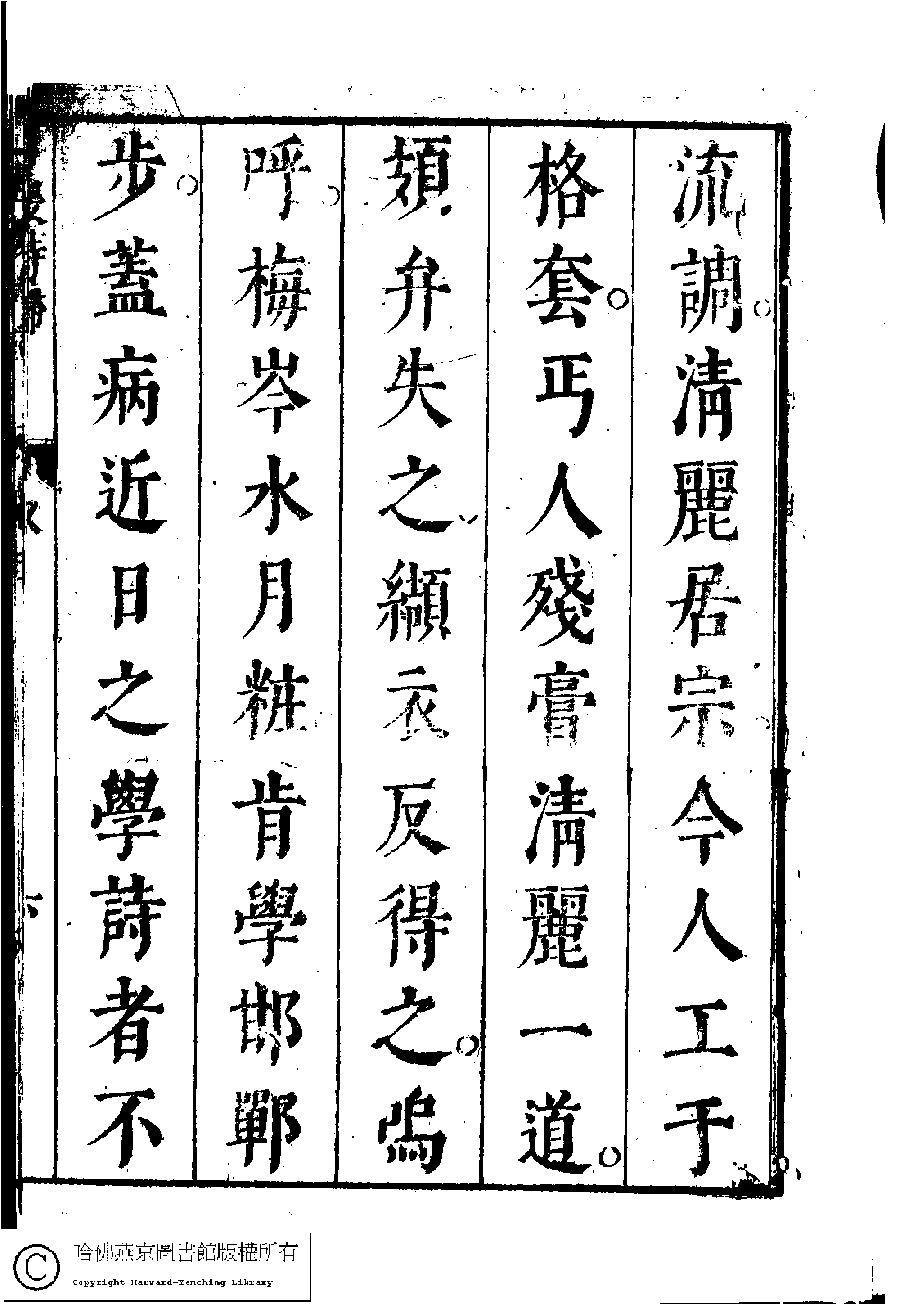 流調清麗居宗今人工于
格套丐人殘膏清麗一道
頍弁失之纈衣反得之嗚
呼梅岑水月粧肯學邯鄲
步蓋病近日之學詩者不
哈佛燕京圖書館版權所有
Copyright Harvard-Yenching Library